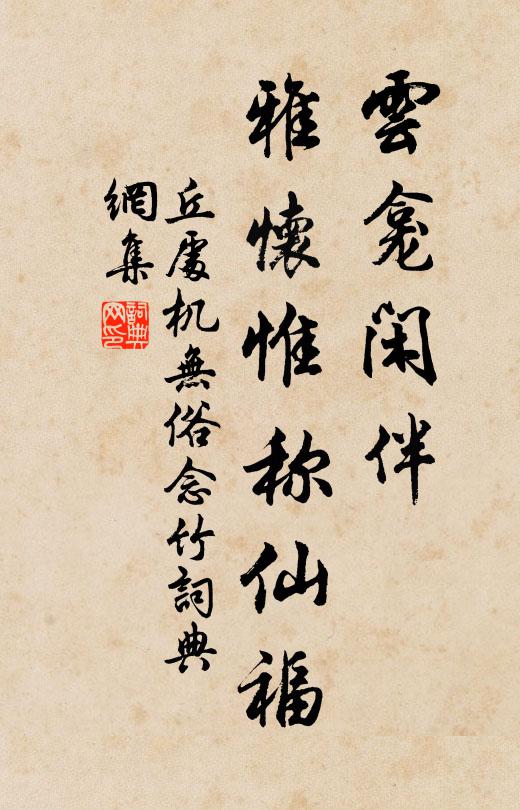 雲龛閑伴
雅懷惟称仙福
丘處机無俗念竹詞典
網集
詞典
网印